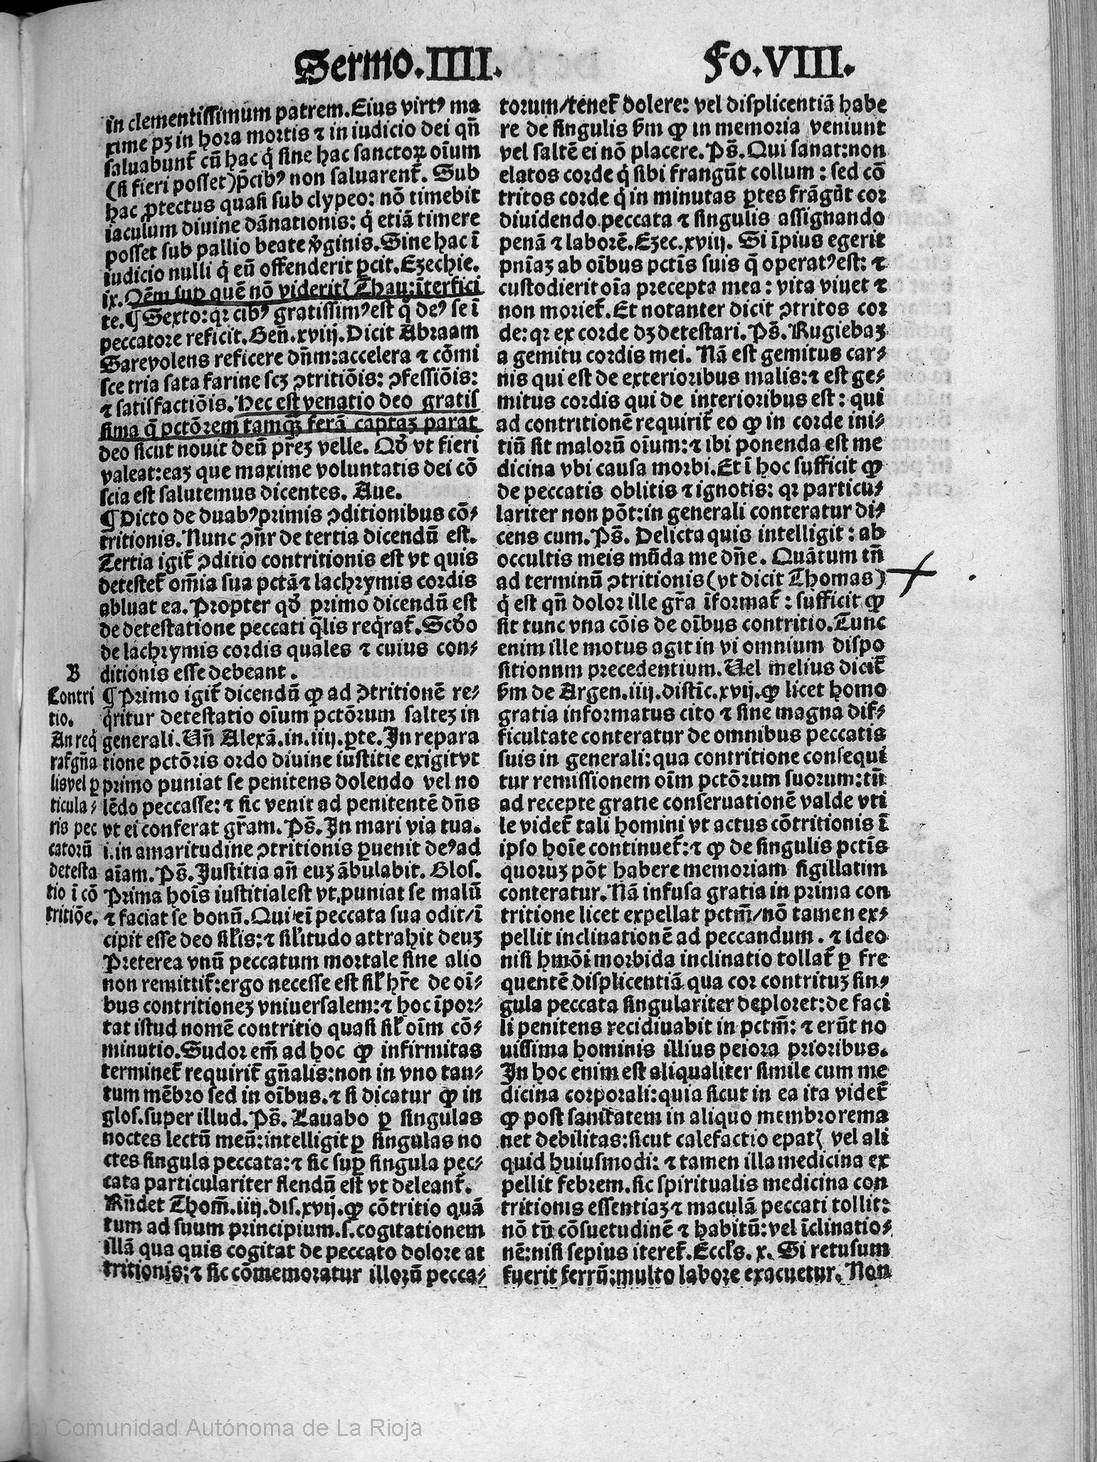 Sermo.IIII. Fo.VIII.
in clementissimum patrem. Eius virtꝰ ma
xime pꝫ in hora mortis ⁊ in iudicio dei qñ
saluabunt᷑ cū hac q̇ sine hac sanctoꝝ oīum
(si fieri posset) p̄cibꝰ non saluarent᷑. Sub
hac ꝓtectus quasi sub clypeo: nō timebit
iaculum diuine dānationis: q̇ etiā timere
posset sub pallio beate v̄ginis. Sine hac ī
iudicio nulli q̇ eū offenderit ꝑcit. Ezechie.
ix. Oēm suꝑ quē nō videritꭍ Thau: īterfici
te. ¶ Sexto: qꝛ cibꝰ gratissimꝰ est q̇ deꝰ se ī
peccatore reficit. Geñ. xviij. Dicit Abraam
Sare volens reficere dñm: accelera ⁊ cōmi
sce tria sata farine scꝫ ꝯtritiōis: ꝯfessiōis:
⁊ satisfactiōis. Hec est venatio deo gratis
sima q̄ pctōrem tamqꝫ ferā captaꝫ parat
deo sicut nouit deū p̄reꝫ velle. Qḋ vt fieri
valeat: eaꝫ que maxime voluntatis dei cō
scia est salutemus dicentes. Aue.
¶ Dicto de duabꝰ primis ꝯditionibus cō⸗
tritionis. Nunc ꝯñr de tertia dicendū est.
Tertia igit᷑ ꝯditio contritionis est vt quis
detestet᷑ om̄ia sua pctā ⁊ lachrymis cordis
abluat ea. Propter qḋ primo dicendū est
de detestatione peccati q̄lis reqrat᷑. Scḋo
de lachrymis cordis quales ⁊ cuius con⸗
ditionis esse debeant.
B
Contri
tio.
An req̇
rat᷑ gn̄a
lis vel ꝑ
ticula⸗
ris pec
catorū
detesta
tio ī cō
tritiōe.
¶ Primo igit᷑ dicendū ꝙ ad ꝯtritionē re⸗
q̇ritur detestatio oīum pctōrum salteꝫ in
generali. Uñ Alexā. in. iiij. ꝑte. In repara
tione pctōris ordo diuine iustitie exigit vt
primo puniat se penitens dolendo vel no
lēdo peccasse: ⁊ sic venit ad penitentē dñs
vt ei conferat gr̄am. Ps̄. In mari via tua.
i. in amaritudine ꝯtritionis ꝑuenit deꝰ ad
aīam. Ps̄. Iustitia añ euꝫ ābulabit. Glos.
Prima hoīs iustitia est vt puniat se malū
⁊ faciat se bonū. Qui eī peccata sua odit/ī
cipit esse deo sīlis: ⁊ sīlitudo attrahit deuꝫ
Preterea vnū peccatum mortale sine alio
non remittit᷑: ergo necesse est sīl hr̄e de oī⸗
bus contritioneꝫ vniuersalem: ⁊ hoc īpor⸗
tat istud nomē contritio quasi sīl oīm cō⸗
minutio. Sudor em̄ ad hoc ꝙ infirmitas
terminet᷑ requirit᷑ gn̄alis: non in vno tan⸗
tum mēbro sed in oībus. ⁊ si dicatur ꝙ in
glos. super illud. Ps̄. Lauabo ꝑ singulas
noctes lectū meū: intelligit ꝑ singulas no
ctes singula peccata: ⁊ sic suꝑ singula pec⸗
cata particulariter flendū est vt deleant᷑.
Rn̄det Thom̄. iiij. dis. xvij. ꝙ cōtritio quā
tum ad suum principium. s. cogitationem
illā qua quis cogitat de peccato dolore at
tritionis: ⁊ sic cōmemoratur illorū pecca⸗
torum/tenet᷑ dolere: vel displicentiā habe
re de singulis s̄m ꝙ in memoria veniunt
vel saltē ei nō placere. Ps̄. Qui sanat: non
elatos corde q̇ sibi frangūt collum: sed cō
tritos corde q̇ in minutas ꝑtes frāgūt cor
diuidendo peccata ⁊ singulis assignando
penā ⁊ laborē. Ezec. xviij. Si īpius egerit
pn̄iaꝫ ab oībus pctīs suis q̄ operatꝰ est: ⁊
custodierit oīa precepta mea: vita viuet ⁊
non moriet᷑. Et notanter dicit ꝯtritos cor
de: qꝛ ex corde dꝫ detestari. Ps̄. Rugiebaꝫ
a gemitu cordis mei. Nā est gemitus car⸗
nis qui est de exterioribus malis: ⁊ est ge⸗
mitus cordis qui de interioribus est: qui
ad contritionē requirit᷑ eo ꝙ in corde ini⸗
tiū sit malorū oīum: ⁊ ibi ponenda est me
dicina vbi causa morbi. Et ī hoc sufficit ꝙ
de peccatis oblitis ⁊ ignotis: qꝛ particu⸗
lariter non pōt: in generali conteratur di⸗
cens cum. Ps̄. Delicta quis intelligit: ab
occultis meis mūda me dñe. Quātum tn̄
ad terminū ꝯtritionis (vt dicit Thomas)
q̇ est qñ dolor ille gr̄a īformat᷑: sufficit ꝙ
sit tunc vna cōis de oībus contritio. Tunc
enim ille motus agit in vi omnium dispo
sitionnm precedentium. Uel melius dicit᷑
s̄m de Argen. iiij. distīc. xvij. ꝙ licet homo
gratia informatus cito ⁊ sine magna dif⸗
ficultate conteratur de omnibus peccatis
suis in generali: qua contritione consequi
tur remissionem oīm pctōrum suorum: tn̄
ad recepte gratie conseruationē valde vti
le videt᷑ tali homini vt actus cōtritionis ī
ipso hoīe continuet᷑: ⁊ ꝙ de singulis pctīs
quoruꝫ pōt habere memoriam sigillatim
conteratur. Nā infusa gratia in prima con
tritione licet expellat pctm̄/nō tamen ex⸗
pellit inclinationē ad peccandum. ⁊ ideo
nisi hmōi morbida inclinatio tollat᷑ ꝑ fre
quentē displicentiā qua cor contrituꝫ sin⸗
gula peccata singulariter deploret: de faci
li penitens recidiuabit in pctm̄: ⁊ erūt no
uissima hominis illius peiora prioribus.
In hoc enim est aliqualiter simile cum me
dicina corporali: quia sicut in ea ita videt᷑
ꝙ post sanitatem in aliquo membro rema
net debilitas: sicut calefactio epatꭍ vel ali
quid huiusmodi: ⁊ tamen illa medicina ex
pellit febrem. sic spiritualis medicina con
tritionis essentiaꝫ ⁊ maculā peccati tollit:
nō tn̄ cōsuetudinē ⁊ habitū: vel īclinatio⸗
nē: nisi sepius iteret᷑. Eccl̄s. x. Si retusum
fuerit ferrū: multo labore exacuetur. Non
(c) Comunidad Autónoma de La Rioja